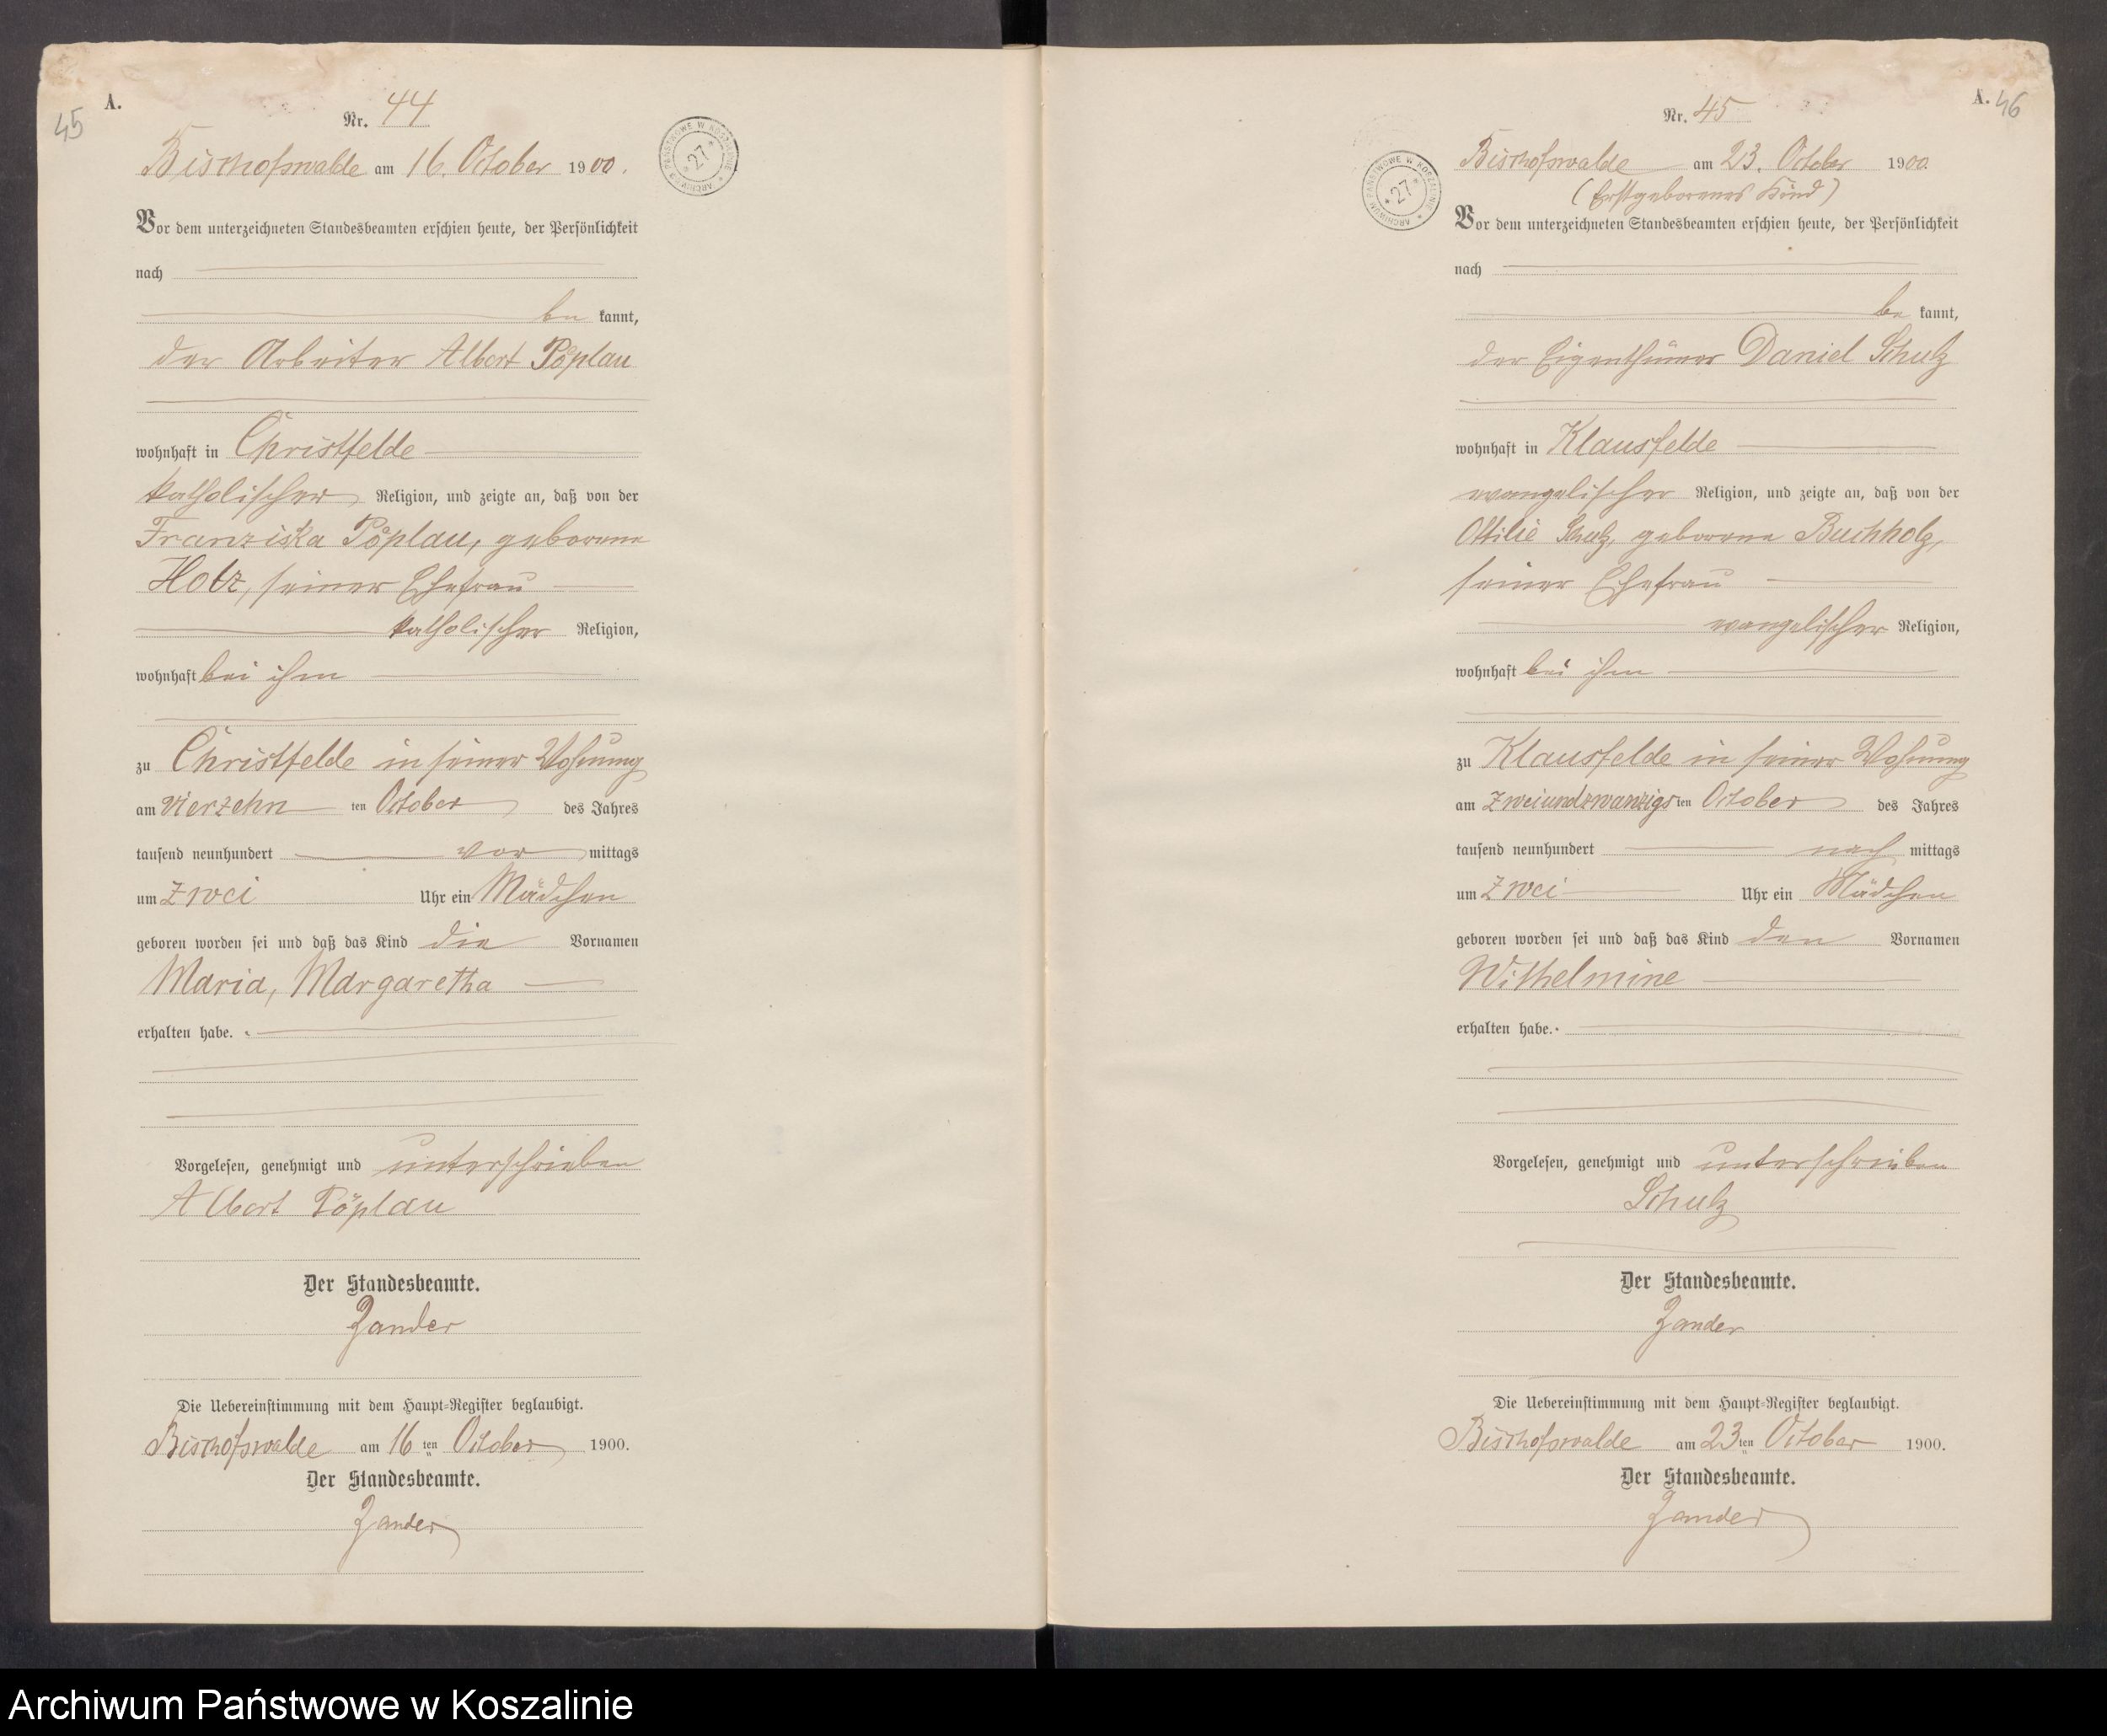 45
A.
Nr. 44
Bischofswalde am 16. October 1900.
ARCHIWUM PAŃSTWOWE W KOSZALINIE * 27 *
Vor dem unterzeichneten Standesbeamten erschien heute, der Persönlichkeit
nach
be kannt,
der Arbeiter Albert Pöplau
wohnhaft in Christfelde
katholischer Religion, und zeigte an, daß von der
Franziska Pöplau, geborene
Hotz, seiner Ehefrau
katholischer Religion,
wohnhaft bei ihm
zu Christfelde in seiner Wohnung
am vierzehn ten October des Jahres
tausend neunhundert vor mittags
um zwei Uhr ein Mädchen
geboren worden sei und daß das Kind die Vornamen
Maria, Margaretha
erhalten habe.
Vorgelesen, genehmigt und unterschrieben
Albert Pöplau
Der Standesbeamte.
Zander
Die Uebereinstimmung mit dem Haupt-Register beglaubigt.
Bischofswalde am 16 ten October 1900.
Der Standesbeamte.
Zander
A. 46
Nr. 45
Bischofswalde am 23. October 1900.
(Erstgeborenes Kind)
ARCHIWUM PAŃSTWOWE W KOSZALINIE * 27 *
Vor dem unterzeichneten Standesbeamten erschien heute, der Persönlichkeit
nach
be kannt,
der Eigenthümer Daniel Schulz
wohnhaft in Klausfelde
evangelischer Religion, und zeigte an, daß von der
Ottilie Schulz, geborene Buchholz,
seiner Ehefrau
evangelischer Religion,
wohnhaft bei ihm
zu Klausfelde in seiner Wohnung
am zweiundzwanzigs ten October des Jahres
tausend neunhundert nach mittags
um zwei Uhr ein Mädchen
geboren worden sei und daß das Kind den Vornamen
Wilhelmine
erhalten habe.
Vorgelesen, genehmigt und unterschrieben
Schulz
Der Standesbeamte.
Zander
Die Uebereinstimmung mit dem Haupt-Register beglaubigt.
Bischofswalde am 23 ten October 1900.
Der Standesbeamte.
Zander
Archiwum Państwowe w Koszalinie